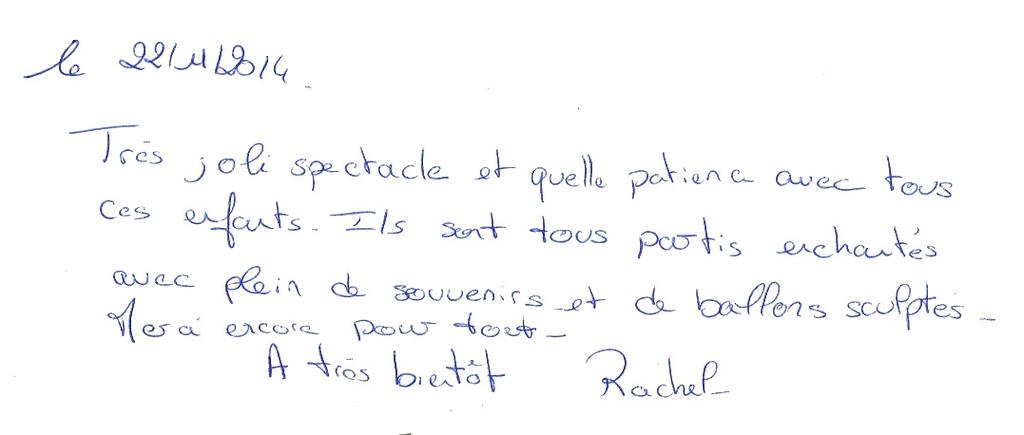 le 22/11/2014.
Très joli spectacle et quelle patience avec tous
ces enfants. Ils sont tous partis enchantés
avec plein de souvenirs et de ballons sculptés -
Merci encore pour tout -
A très bientôt Rachel